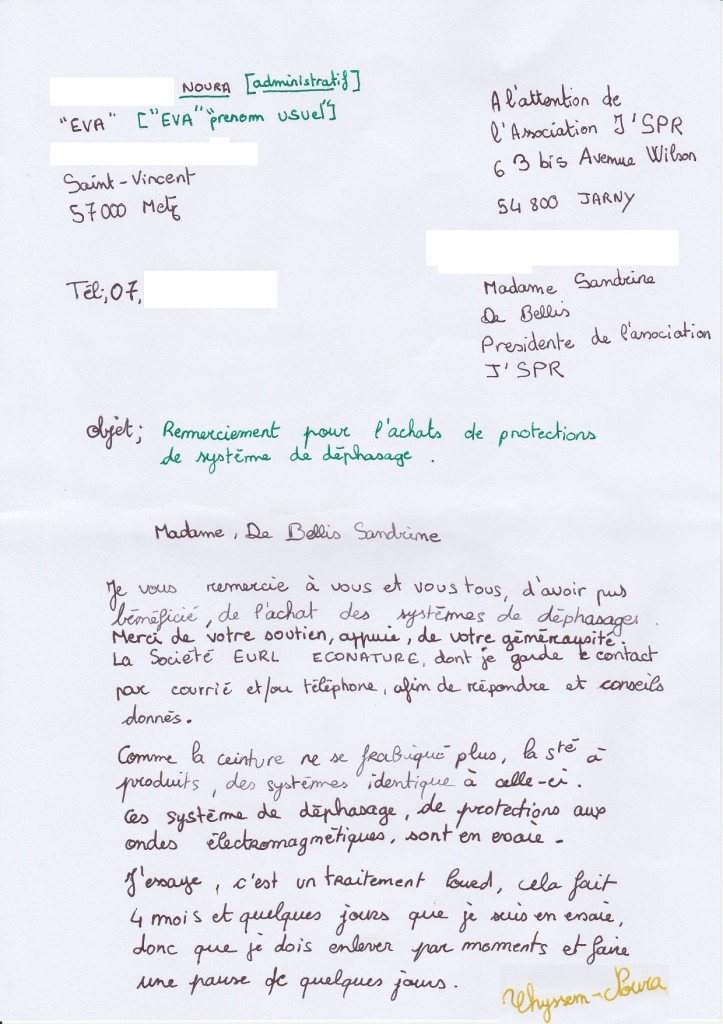 NOURA [administratif]
"EVA" ["EVA" "prenom usuel"]
Saint-Vincent
57000 Metz
Tél:, 07,
A l'attention de
l'Association J'SPR
63 bis Avenue Wilson
54 800 JARNY
Madame Sandrine
De Bellis
Presidente de l'association
J'SPR
objet; Remerciement pour l'achats de protections
de système de déphasage.
Madame, De Bellis Sandrine
Je vous remercie à vous et vous tous, d'avoir pus
bénéficié, de l'achat des systèmes de déphasages.
Merci de votre soutien, appuie, de votre génèrausité.
La Société EURL ECONATURE, dont je garde le contact
par courrié et/ou téléphone, afin de répondre et conseils
donnés.
Comme la ceinture ne se frabiqué plus, la sté à
produits, des systèmes identique à celle-ci.
Ces système de déphasage, de protections aux
ondes électromagnétiques, sont en essaie.
J'essaye, c'est un traitement lourd, cela fait
4 mois et quelques jours que je suis en essaie,
donc que je dois enlever par moments et faire
une pause de quelques jours.